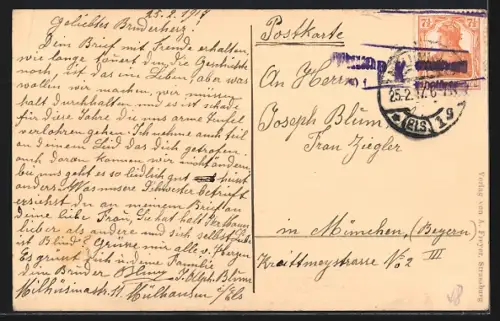 25.2.1917
Geliebtes Bruderherz!
Dein Brief mit Freude erhalten,
wie lange tauert den die Geschichte
noch, ist das ein Leben, aber was
wollen wir machen, wir müssen
halt durchhalten und es ist schade
für diese Jahre die uns arme Teufel
verlohren gehen. Ich nehme auch teil
an deinem Leid das dich getroffen.
auch daran können wir nicht ändern
bei uns geht es so leidlich gut
anders. Was unsere Schwester betrifft
ersiehst du an meinem Brief an
deine liebe Frau. Sie hat halt
lieber als andere und sich selbst
ist Blind. Grüsse mir alle v. Herzen
Es grüsst dich u deine Familie
dein Bruder Alph. Blum
Mülhausen i/Els
Postkarte
7½ 7½
25.2.17.
(ELS) 1g
An Herrn
Joseph Blum
Frau Ziegler
in Münschen, (Beyern)
Kraittmeystrasse No 2 III
Verlag von J. Ferrer, Strassburg